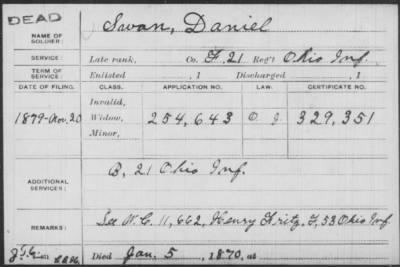 DEAD
NAME OF SOLDIER: Swan, Daniel
SERVICE: Late rank, Co. F. 21 Reg't Ohio Inf.
TERM OF SERVICE: Enlisted , 1 Discharged , 1
DATE OF FILING. CLASS. APPLICATION NO. LAW. CERTIFICATE NO.
Invalid,
1879-Nov. 20 Widow, 254,643 329,351
Minor,
ADDITIONAL SERVICES: B, 21 Ohio Inf.
REMARKS: See W.C. 11,662, Henry Fritz, F, 53 Ohio Inf
Died Jan. 5, 1870, at